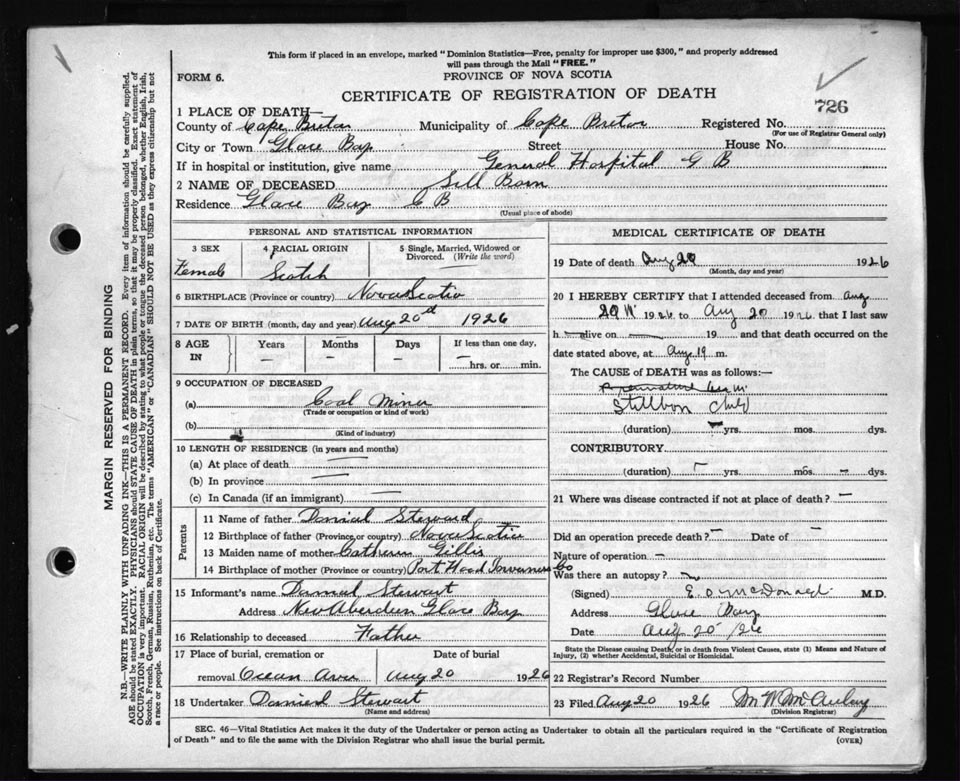 This form if placed in an envelope, marked "Dominion Statistics—Free, penalty for improper use $300," and properly addressed
will pass through the Mail "FREE."
FORM 6.
PROVINCE OF NOVA SCOTIA
CERTIFICATE OF REGISTRATION OF DEATH
726
1 PLACE OF DEATH—
County of Cape Breton Municipality of Cape Breton Registered No.
(For use of Registrar General only)
City or Town Glace Bay Street House No.
If in hospital or institution, give name General Hospital G B
2 NAME OF DECEASED Sill Born
Residence Glace Bay C B
(Usual place of abode)
PERSONAL AND STATISTICAL INFORMATION
3 SEX 4 RACIAL ORIGIN 5 Single, Married, Widowed or
Divorced. (Write the word)
Female Scotch
6 BIRTHPLACE (Province or country) Nova Scotia
7 DATE OF BIRTH (month, day and year) Aug 20 1926
8 AGE IN Years Months Days If less than one day,
hrs. or min.
9 OCCUPATION OF DECEASED
(a) Coal Miner
(Trade or occupation or kind of work)
(b)
(Kind of industry)
10 LENGTH OF RESIDENCE (in years and months)
(a) At place of death
(b) In province
(c) In Canada (if an immigrant)
Parents
11 Name of father Danial Steward
12 Birthplace of father (Province or country) Nova Scotia
13 Maiden name of mother Gillis
14 Birthplace of mother (Province or country) Port Hood Inverness Co
15 Informant's name Daniel Stewart
Address New Aberdeen Glace Bay
16 Relationship to deceased Father
17 Place of burial, cremation or Date of burial
removal Ocean Ave Aug 20 1926
18 Undertaker Daniel Stewart
(Name and address)
MEDICAL CERTIFICATE OF DEATH
19 Date of death Aug 20 1926
(Month, day and year)
20 I HEREBY CERTIFY that I attended deceased from Aug
20 1926 to Aug 20 1926 that I last saw
h alive on 19 and that death occurred on the
date stated above, at Aug 19 m.
The CAUSE of DEATH was as follows:—
Stillborn child
(duration) yrs. mos. dys.
CONTRIBUTORY
(duration) yrs. mos. dys.
21 Where was disease contracted if not at place of death?
Did an operation precede death? Date of
Nature of operation
Was there an autopsy?
(Signed) McDonald M.D.
Address Glace Bay
Date Aug 20 /26
State the Disease causing Death, or in death from Violent Causes, state (1) Means and Nature of
Injury, (2) whether Accidental, Suicidal or Homicidal.
22 Registrar's Record Number
23 Filed Aug 20 1926
(Division Registrar)
SEC. 46—Vital Statistics Act makes it the duty of the Undertaker or person acting as Undertaker to obtain all the particulars required in the "Certificate of Registration
of Death" and to file the same with the Division Registrar who shall issue the burial permit. (OVER)
MARGIN RESERVED FOR BINDING
N.B.—WRITE PLAINLY WITH UNFADING INK—THIS IS A PERMANENT RECORD. Every item of information should be carefully supplied.
AGE should be stated EXACTLY. PHYSICIANS should STATE CAUSE OF DEATH in plain terms, so that it may be properly classified. Exact statement of
OCCUPATION is very important. RACIAL ORIGIN will be described by stating to what people or tongue the deceased person belonged, whether English, Irish,
Scotch, French, German, Russian, Ruthenian, etc. The terms "AMERICAN" or "CANADIAN" SHOULD NOT BE USED as they express citizenship but not
a race or people. See instructions on back of Certificate.